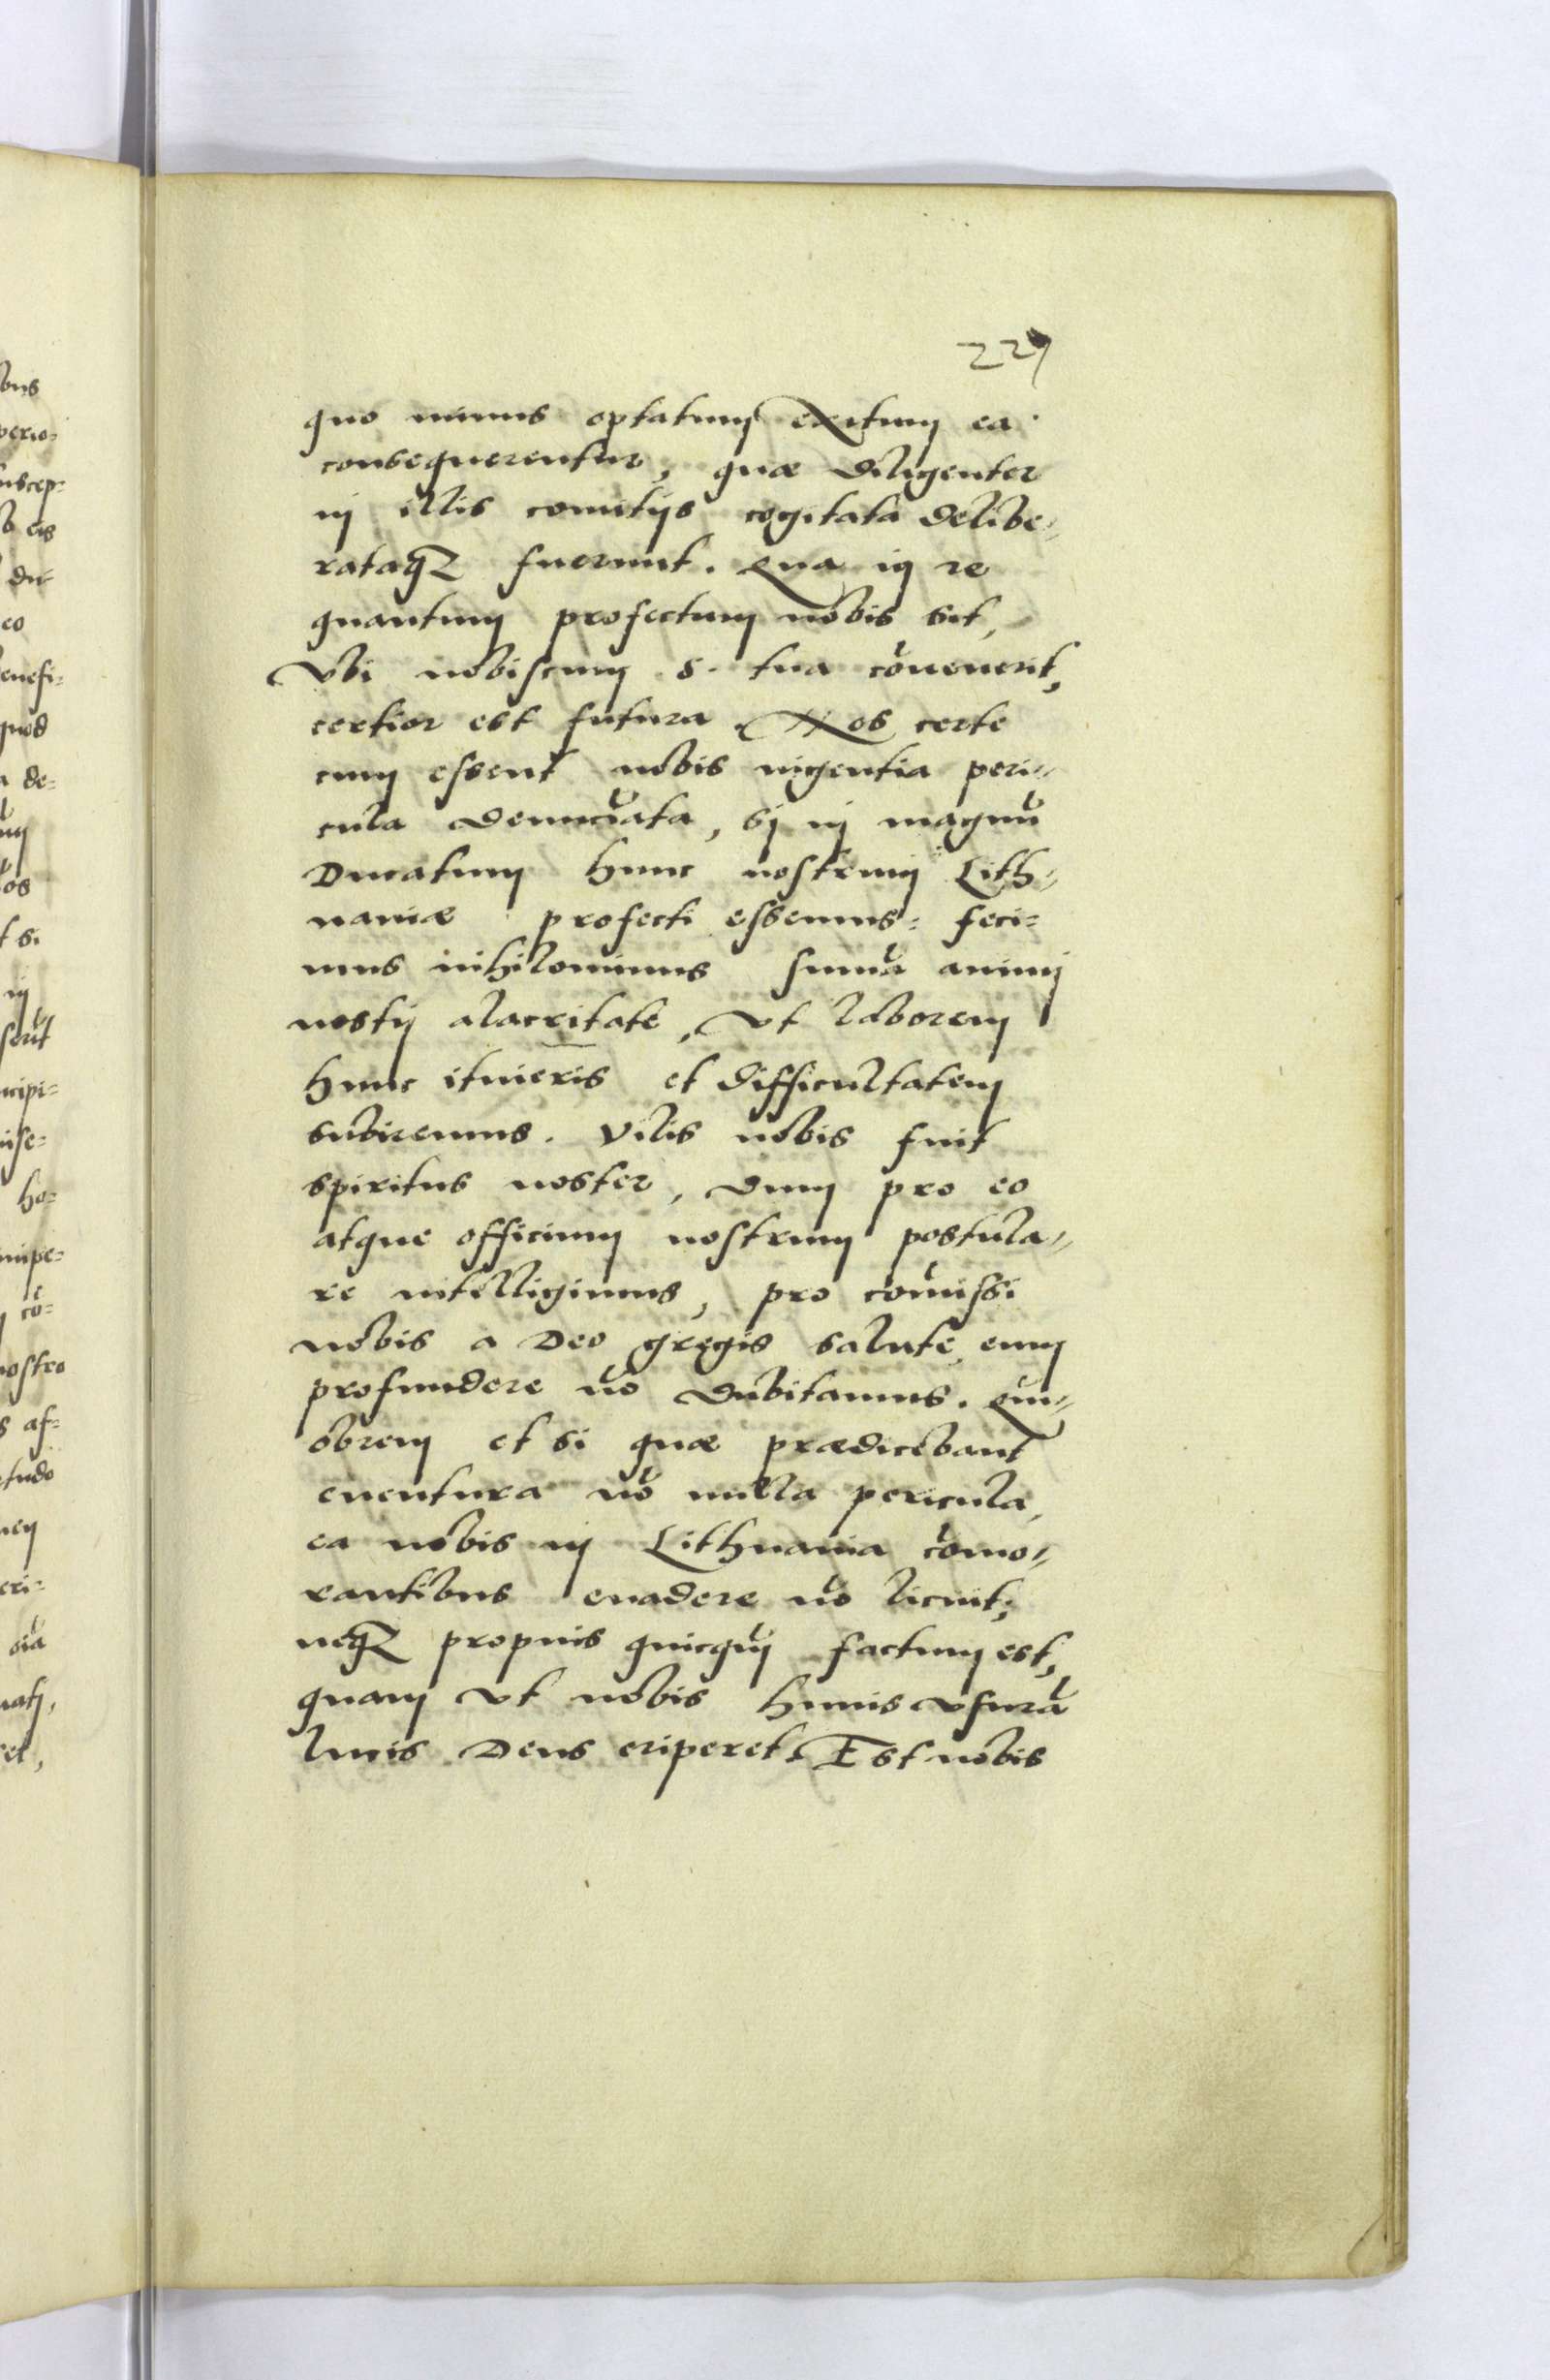 229
quo minus optatum exitum ea
consequerentur, quæ diligenter
in illis comitijs cogitata delibe-
rataq3 fuerunt. Qua in re
quantum profectum nobis sit,
Vbi nobiscum S. tua cõuenerit,
certior est futura. Nos certe
cum essent nobis ingentia peri-
cula denunciata, si in magnũ
Ducatum hunc nostrum Lith-
uaniæ profecti essemus: feci-
mus nihilominus summa animi
nostri alacritate, vt laborem
hunc itineris et difficultatem
subiremus. Vilis nobis fuit
spiritus noster, dum pro eo
atque officium nostrum postula-
re intelligimus, pro cõmissi
nobis a Deo gregis salute eum
profundere nõ dubitamus. Qui-
obrem et si quæ prædicebant
euentura nõ nulla pericula,
ea nobis in Lithuania cõmo-
rantibus euadere nõ licuit,
neq3 propius quicquã factum est,
quam vt nobis huius vsurã
lucis Deus eriperet. Est nobis
bus
perio-
suscep-
b eis
du-
eo
benefi-
quod
a de-
os
t si
in
serũt
ncipi-
ho-
nipe-
cõ-
nostro
s af-
etudo
eri-
et,